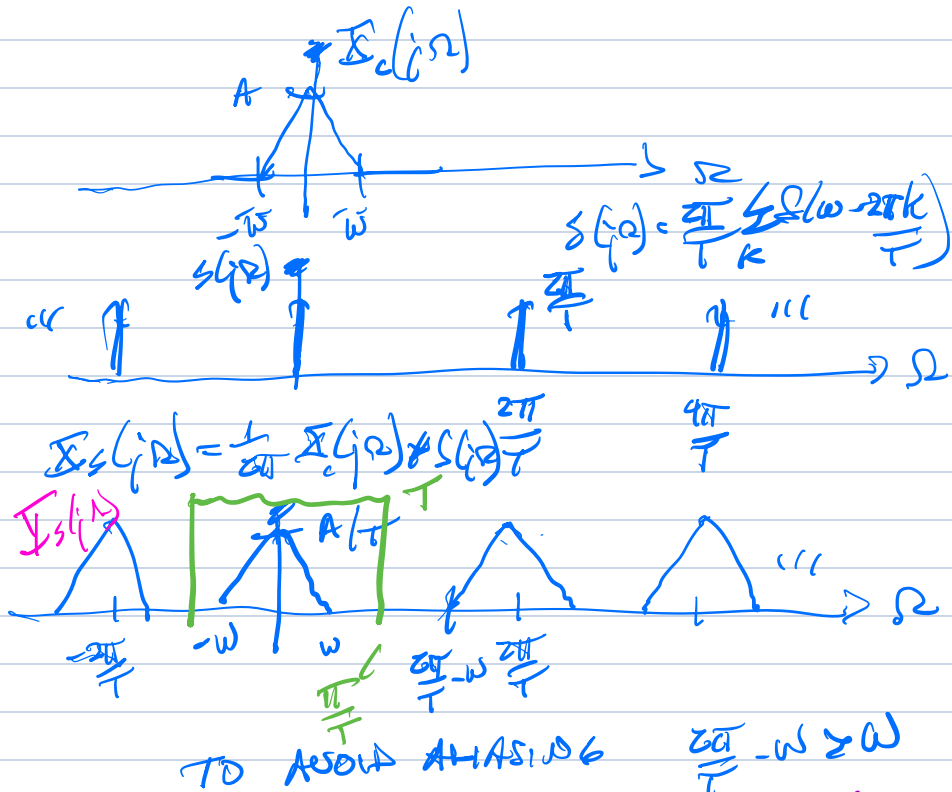 X_c(jΩ)
A
-W W Ω
S(jΩ) = 2π/T Σ_k δ(ω - 2πk/T)
S(jΩ)
2π/T
... ...
Ω
2π/T 4π/T
X_s(jΩ) = 1/2π X_c(jΩ) * S(jΩ)
T
X_s(jΩ)
A/T
...
Ω
-2π/T -W W 2π/T - W 2π/T
π/T
TO AVOID ALIASING 2π/T - W ≥ W